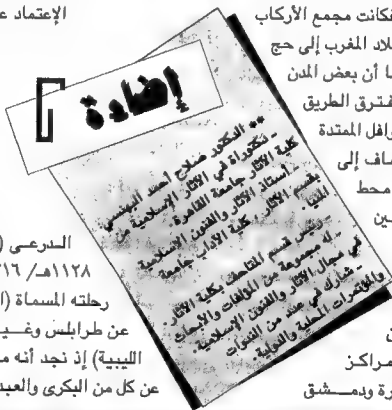 الإعتماد
فكانت مجمع الأركاب
لاد المغرب إلى حج
ا أن بعض المدن
فترق الطريق
وافل الممتدة
ساف إلى
محط
ين
إضاءة
** الدكتور صلاح أحمد البهنسي
- دكتوراة في الآثار الإسلامية من
كلية الآثار جامعة القاهرة
- أستاذ الآثار والفنون الإسلامية
بقسم الآثار، كلية الآداب جامعة
المنيا
قسم المتاحف بكلية الآثار
- له مجموعة من المؤلفات والأبحاث
في مجال الآثار والفنون الإسلامية
- شارك في عدد من الندوات
والمؤتمرات المحلية والدولية
ن
مراكز
رة ودمشق
الدرعي
١١٢٨هـ/
رحلته المسماة
عن طرابلس
الليبية) إذ نجد أنه
عن كل من البكرى